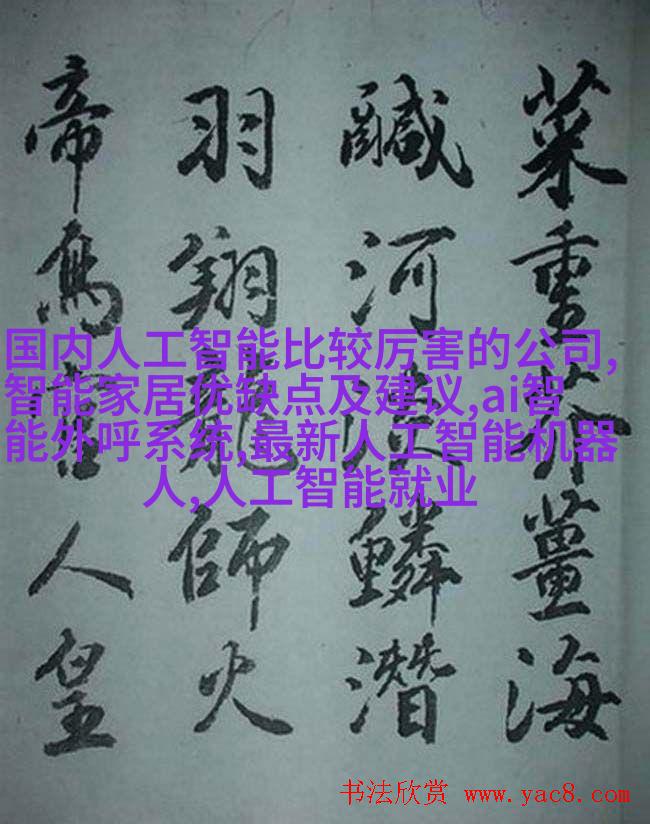 菜重芥薑海
鹹河淡鱗潛
羽翔龍師火
帝鳥官人皇
国内人工智能比较厉害的公司,
智能家居优缺点及建议,ai智
能外呼系统,最新人工智能机器
人,人工智能就业
书法欣赏 www.yac8.com